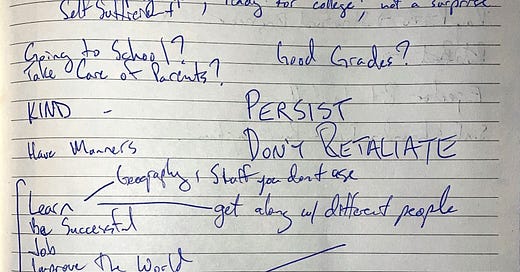 Self Sufficient, ready for college, not a surprise
Going to School? Good Grades?
Take Care of Parents?
KIND - PERSIST
Have Manners DON'T RETALIATE
Geography & Stuff you dont use
Learn get along w/ different people
Be Successful
Job
Improve The World